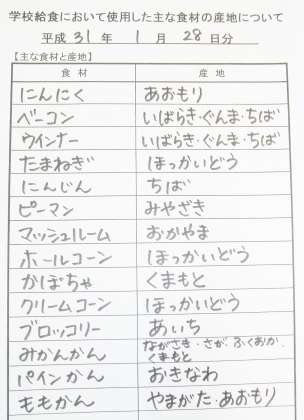 学校給食において使用した主な食材の産地について
平成 31 年 1 月 28 日分
【主な食材と産地】
食材 産地
にんにく あおもり
ベーコン いばらき・ぐんま・ちば
ウインナー いばらき・ぐんま・ちば
たまねぎ ほっかいどう
にんじん ちば
ピーマン みやざき
マッシュルーム おかやま
ホールコーン ほっかいどう
かぼちゃ くまもと
クリームコーン ほっかいどう
ブロッコリー あいち
みかんかん ながさき・さが・ふくおか・
くまもと
パインかん おきなわ
ももかん やまがた・あおもり